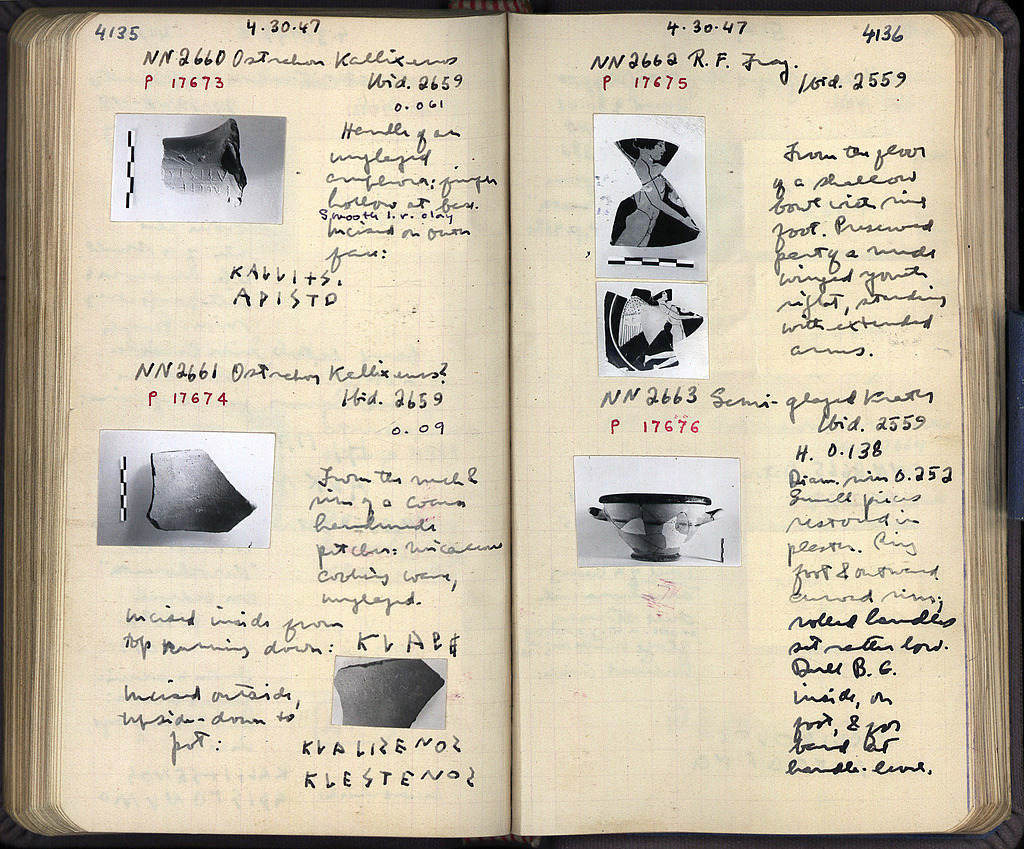 4135
4.30.47
NN2660 Ostrakon Kallixenos
P 17673
Ibid. 2659
0.061
Handle of an
unglazed
amphora: finger
hollow at base.
Smooth l.r. clay
Incised on outer
face:
KALLI+S.
APISTO
NN2661 Ostrakon Kallixenos?
P 17674
Ibid. 2659
0.09
From the neck &
rim of a coarse
handmade
pitcher: micaceous
cooking ware,
unglazed.
Incised inside from
top running down: KLAPE
Incised outside,
upside-down to
pot:
KLALISENOS
KLESTENOS
4.30.47
4136
NN2662 R. F. Frag.
P 17675
Ibid. 2559
From the floor
of a shallow
bowl with ring
foot. Preserved
part of a nude
winged youth
right, standing
with extended
arms.
NN2663 Semi-glazed Krater
P 17676
Ibid. 2559
H. 0.138
Diam. rim 0.252
Small pieces
restored in
plaster. Ring
foot & outward
curved rim;
rolled handles
set rather low.
Dull B. G.
inside, on
foot, & for
band at
handle-level.